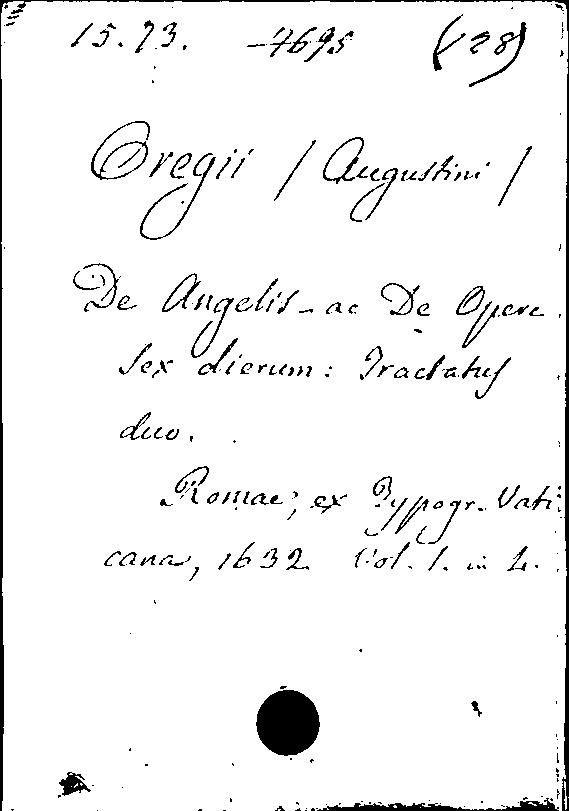 15.73. 7695 (128)
Oregii / Augustini /
De Angelis ac De Opere
sex dierum: Tractatus
duo.
Romae, ex Typogr. Vati
cana, 1632 Vol. 1. in 4.